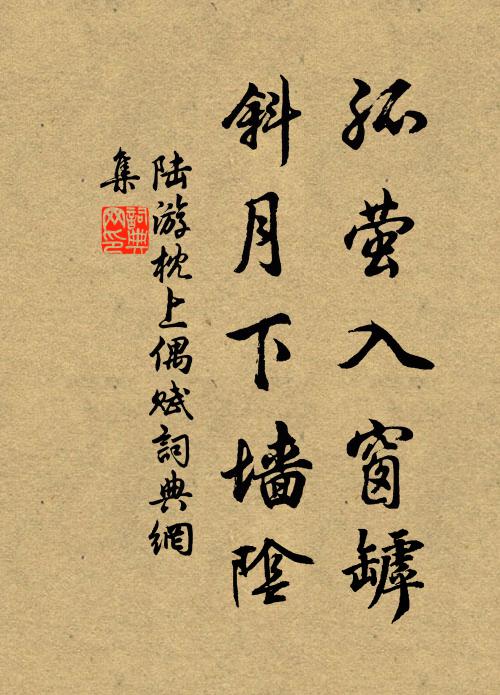 孤萤入窗罅
斜月下墙陰
陆游枕上偶赋詞典網
集
詞典
网印